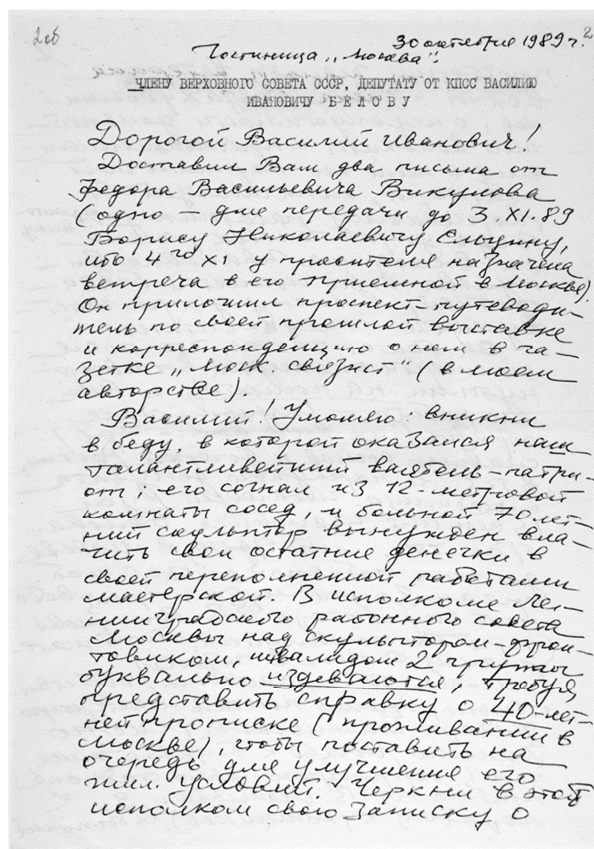 2об
30 октября 1989 г.
2
Гостиница „Москва".
ЧЛЕНУ ВЕРХОВНОГО СОВЕТА СССР, ДЕПУТАТУ ОТ КПСС ВАСИЛИЮ
ИВАНОВИЧУ БЕЛОВУ
Дорогой Василий Иванович!
Доставил Вам два письма от
Федора Васильевича Викулова
(одно для передачи до 3.XI.89
Борису Николаевичу Ельцину,
ибо 4го XI у просителя назначена
встреча в его приемной в Москве).
Он приложил проспект-путеводи-
тель по своей прошлой выставке
и корреспонденцию о нем в га-
зетке „Моск. связист" (в моем
авторстве).
Василий! Умоляю: вникни
в беду, в которой оказался наш
талантливейший ваятель-патри-
от; его согнал из 12-метровой
комнаты сосед, и больной 70 лет-
ний скульптор вынужден вла-
чить свои остатние денечки в
своей переполненной работами
мастерской. В исполкоме Ле-
нинградского районного совета
Москвы над скульптором-фрон-
товиком, инвалидом 2 группы
буквально издеваются, требуя
представить справку о 40-лет-
ней прописке (проживании в
Москве), чтобы поставить на
очередь для улучшения его
жил. условий. Черкни в этот
исполком свою записку о